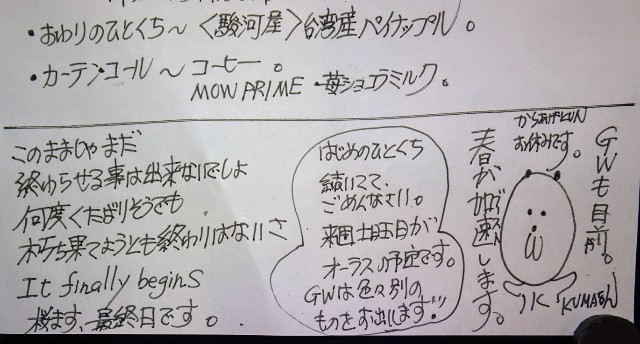 ・おわりのひとくち〜〈駿河屋〉台湾産パイナップル。
・カーテンコール〜コーヒー。
MOW PRIME・苺ショコラミルク。
このままじゃまだ
終わらせる事は出来ないでしょ
何度くたばりそうでも
朽ち果てようとも終わりはないさ
It finally begins
桜ます、最終日です。
はじめのひとくち
続いてて、
ごめんなさい。
来週土曜日が
オーラスの予定です。
GWは色々別の
ものをお出しします!!
からあげKUN
お休みです。
GWも目前。
春が加速します。
KUMASN